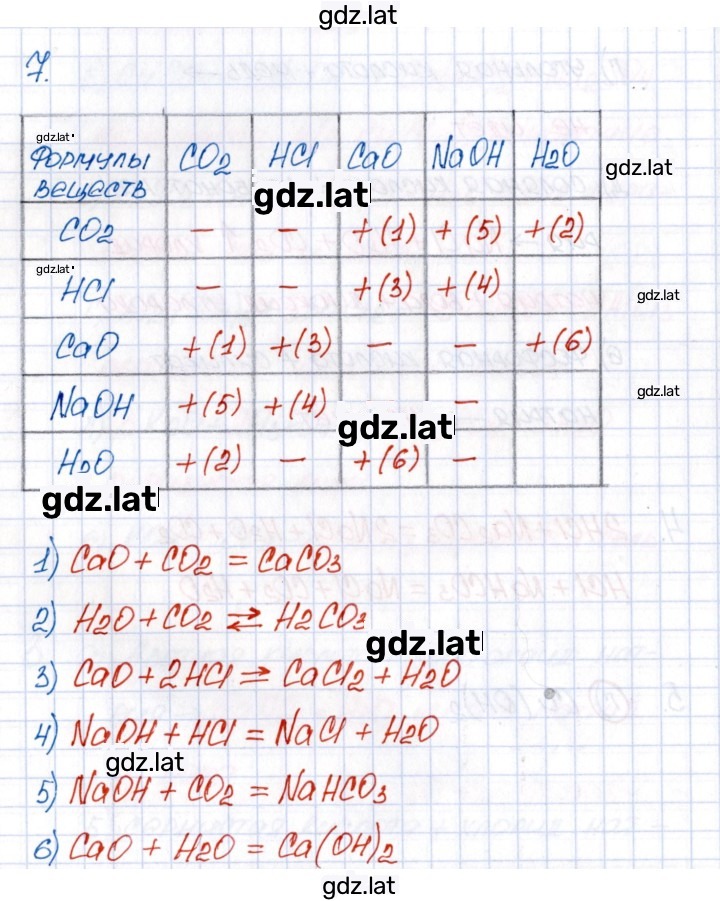 gdz.lat
7.
gdz.lat
Формулы веществ CO2 HCl CaO NaOH H2O
gdz.lat
gdz.lat
CO2 — — +(1) +(5) +(2)
gdz.lat
HCl — — +(3) +(4)
gdz.lat
CaO +(1) +(3) — — +(6)
gdz.lat
NaOH +(5) +(4) —
gdz.lat
H2O +(2) — +(6) —
gdz.lat
1) CaO + CO2 = CaCO3
2) H2O + CO2 ⇄ H2CO3
gdz.lat
3) CaO + 2HCl = CaCl2 + H2O
4) NaOH + HCl = NaCl + H2O
gdz.lat
5) NaOH + CO2 = NaHCO3
6) CaO + H2O = Ca(OH)2
gdz.lat